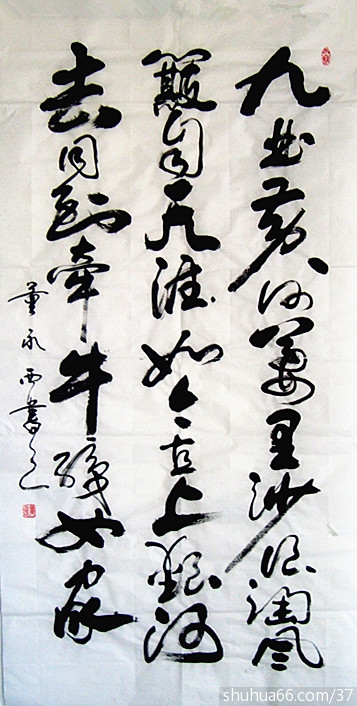 九曲黄河萬里沙浪淘风
簸自天涯如今直上銀河
去同到牵牛織女家
董永西書
shuhua66.com/37